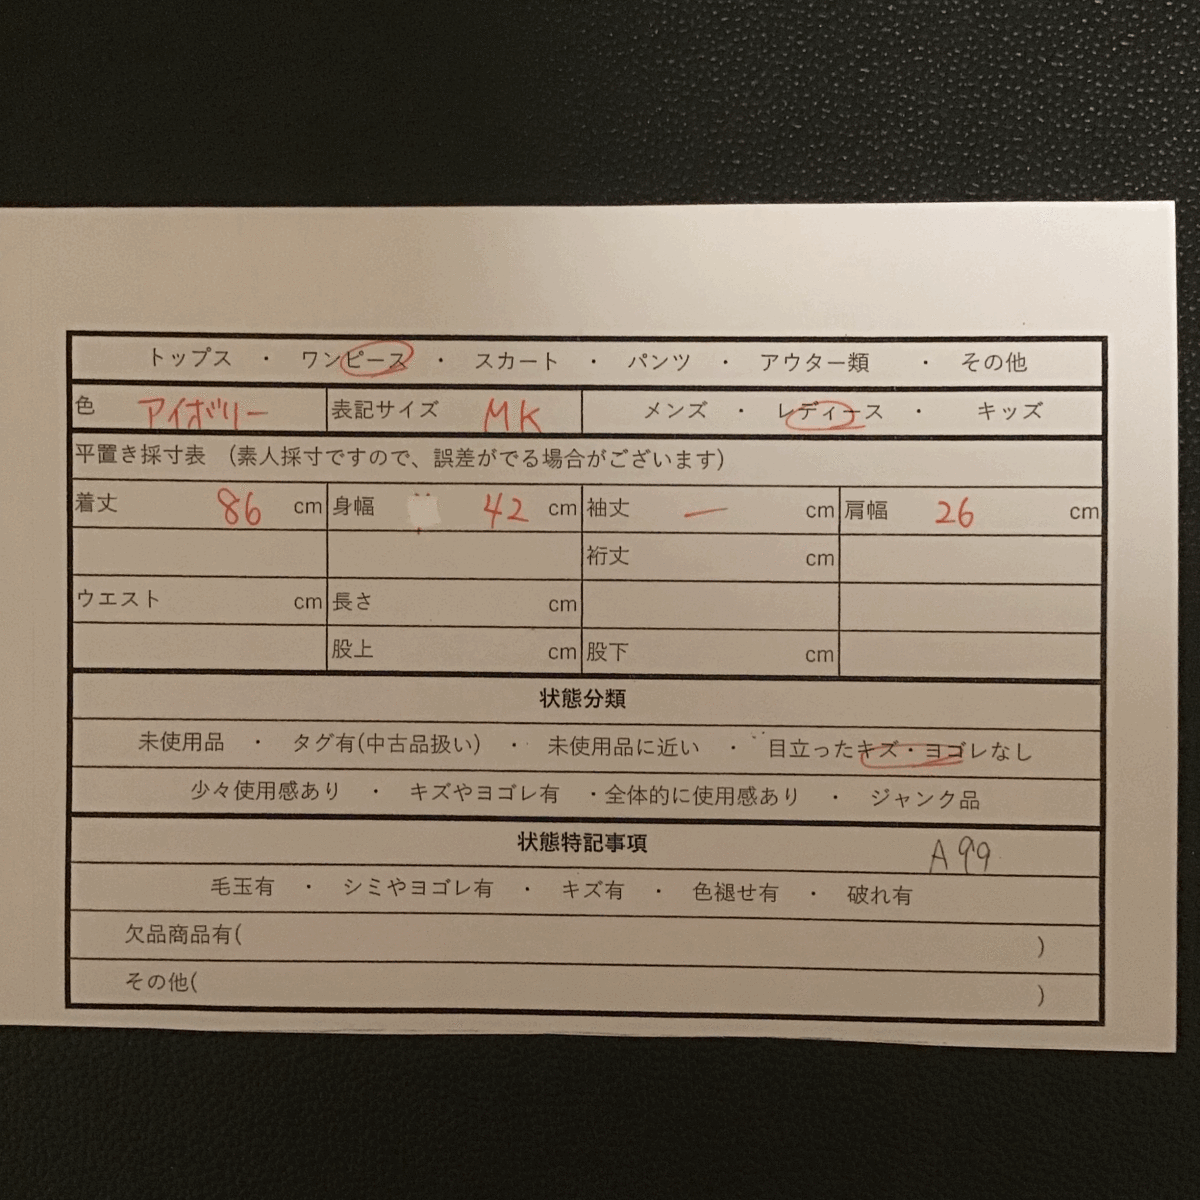 トップス ・ ワンピース ・ スカート ・ パンツ ・ アウター類 ・ その他
色 アイボリー 表記サイズ MK メンズ ・ レディース ・ キッズ
平置き採寸表 (素人採寸ですので、誤差がでる場合がございます)
着丈 86 cm 身幅 42 cm 袖丈 ー cm 肩幅 26 cm
裄丈 cm
ウエスト cm 長さ cm
股上 cm 股下 cm
状態分類
未使用品 ・ タグ有(中古品扱い) ・ 未使用品に近い ・ 目立ったキズ・ヨゴレなし
少々使用感あり ・ キズやヨゴレ有 ・全体的に使用感あり ・ ジャンク品
状態特記事項 A99
毛玉有 ・ シミやヨゴレ有 ・ キズ有 ・ 色褪せ有 ・ 破れ有
欠品商品有( )
その他( )